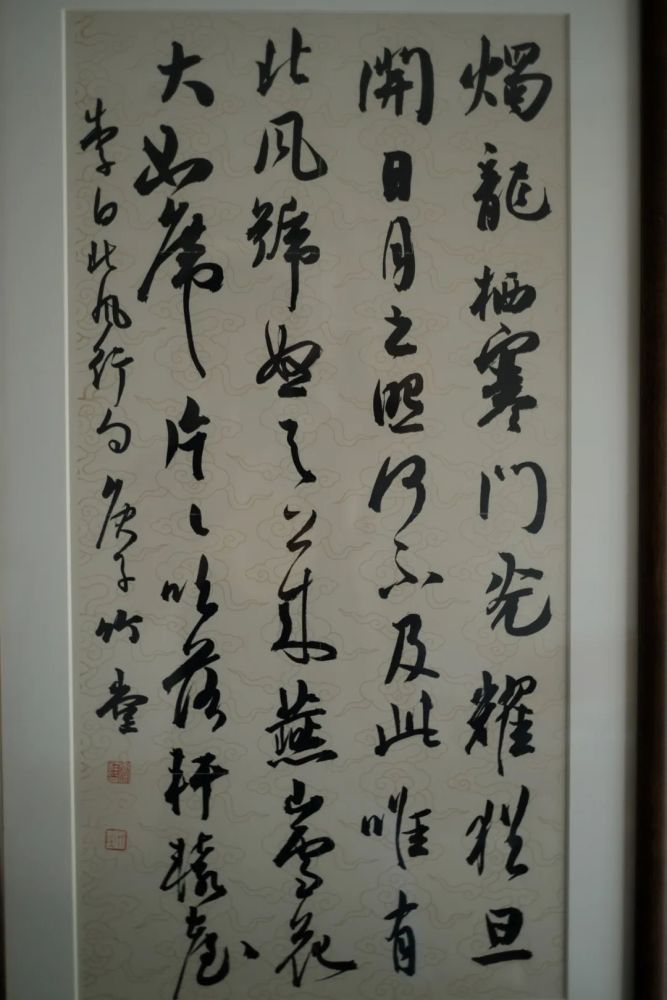 燭龍栖寒門光耀猶旦
開日月之照何不及此唯有
北風號怒天上來燕山雪花
大如席片〻吹落軒轅臺
李白北风行句庚子竹堂